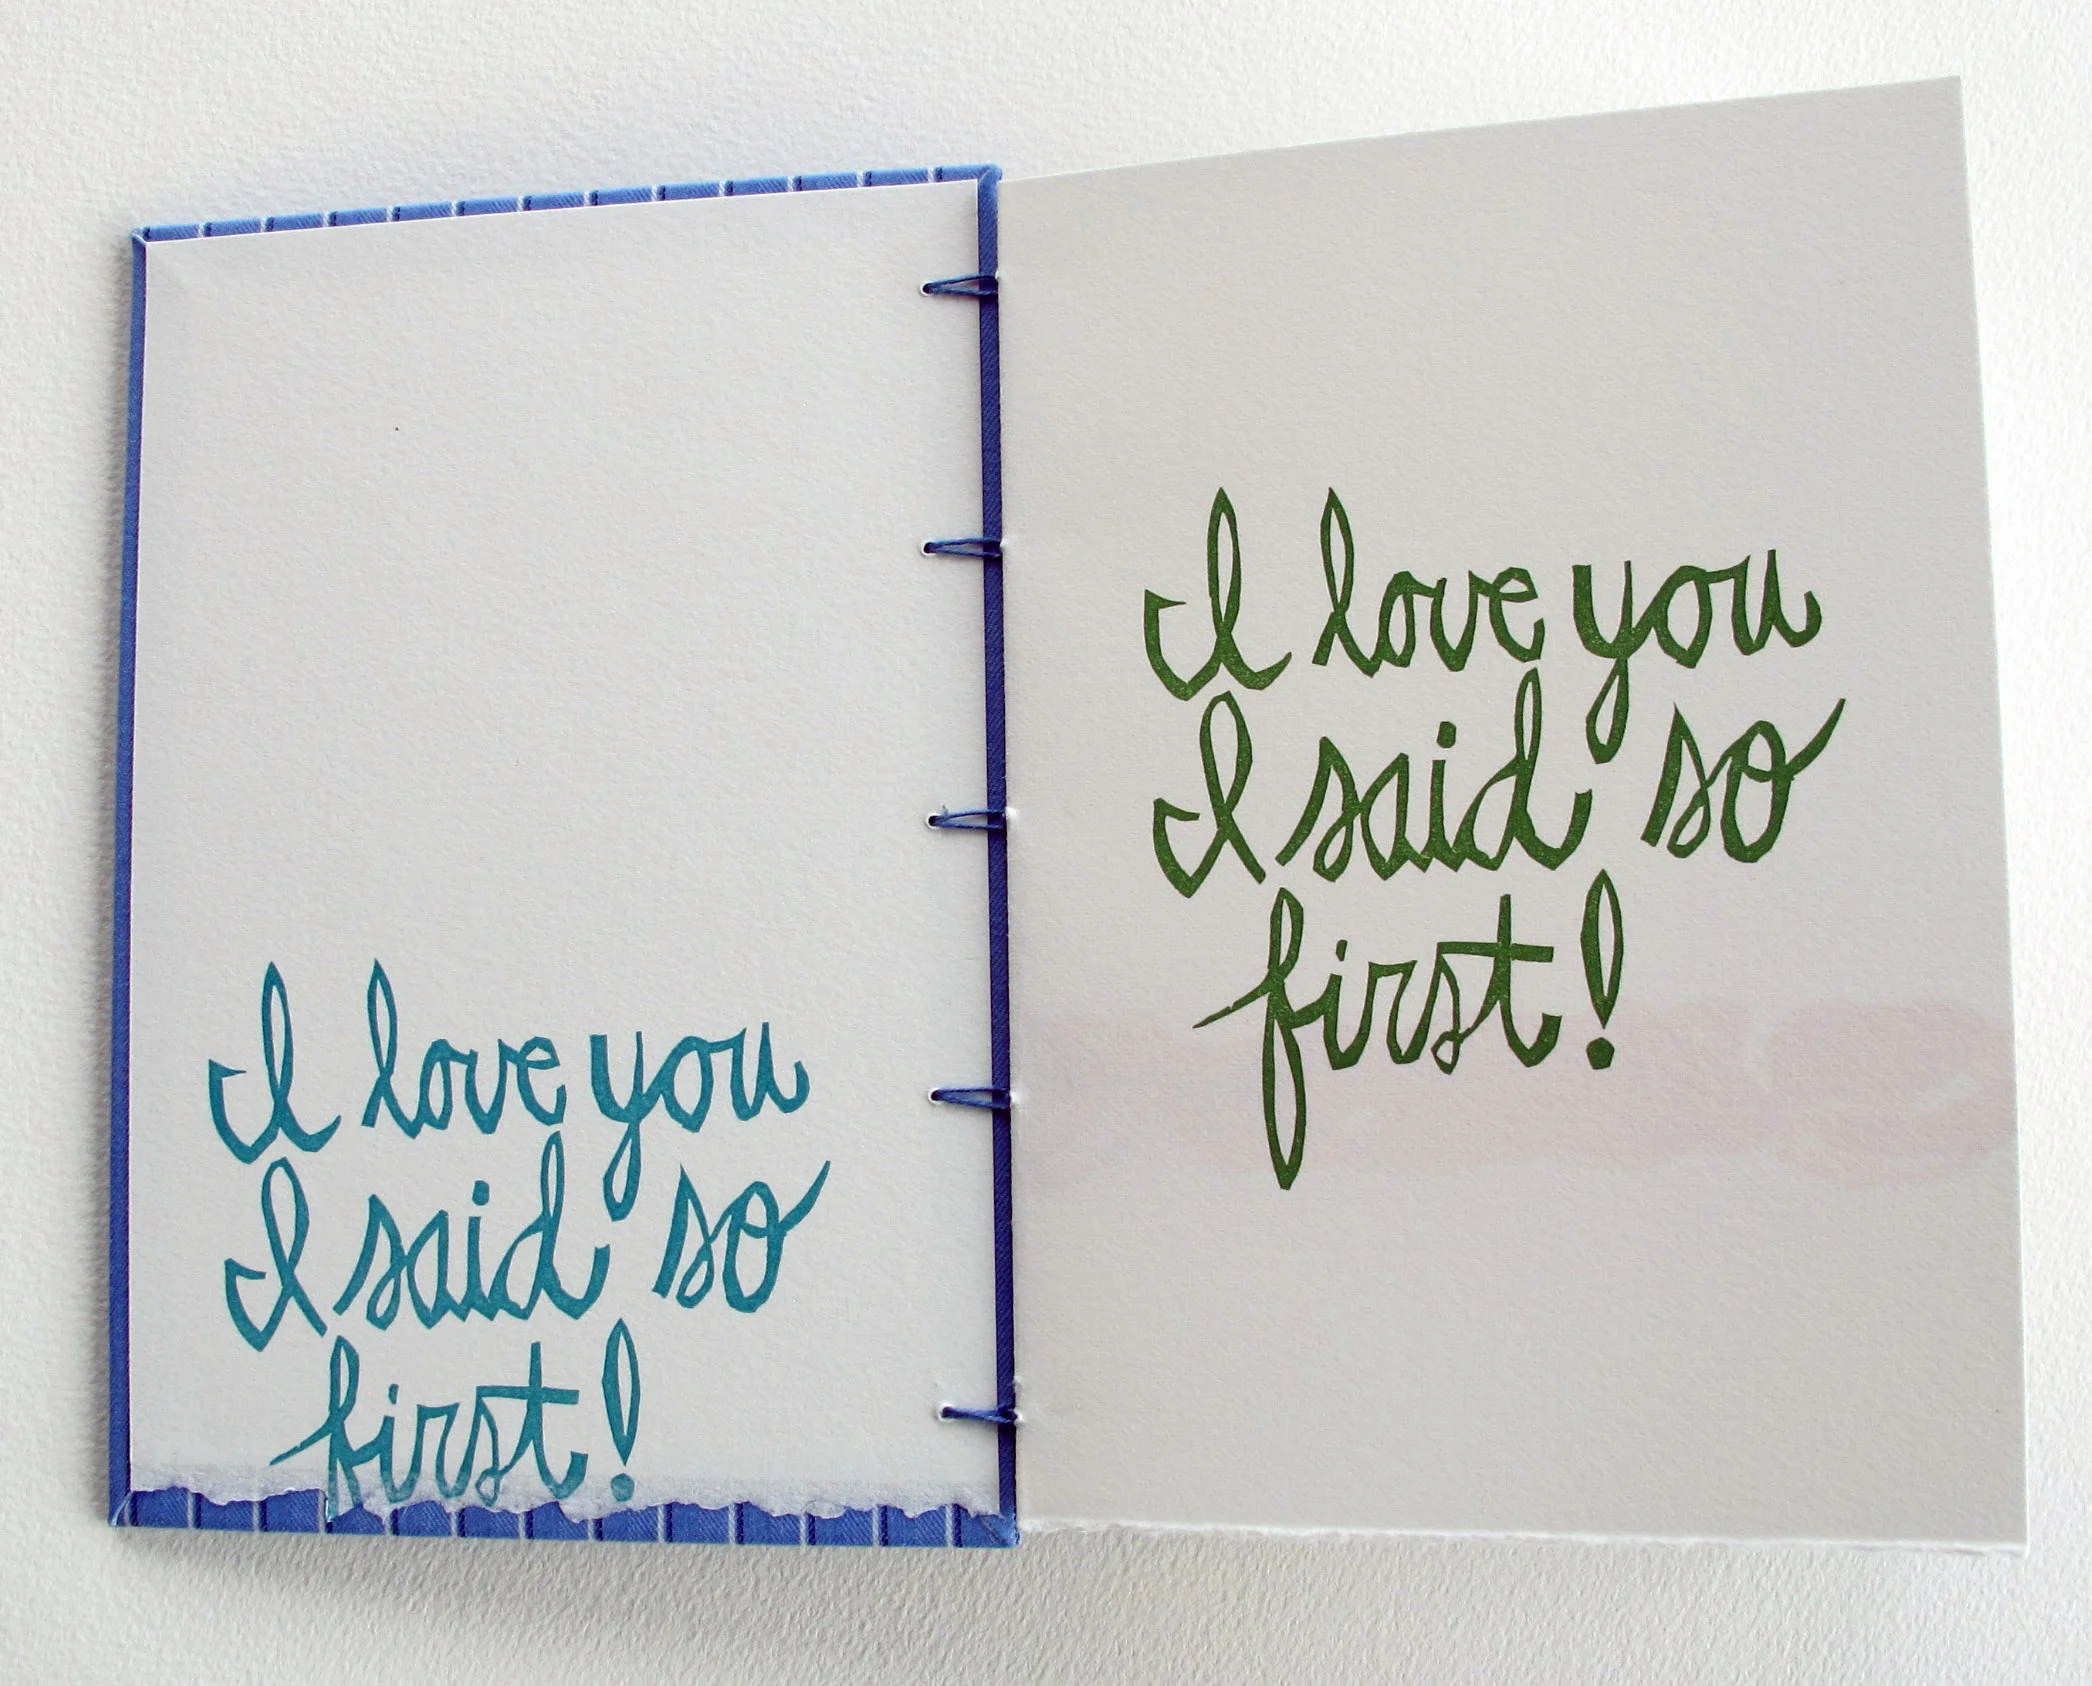 I love you
I said so
first!
I love you
I said so
first!